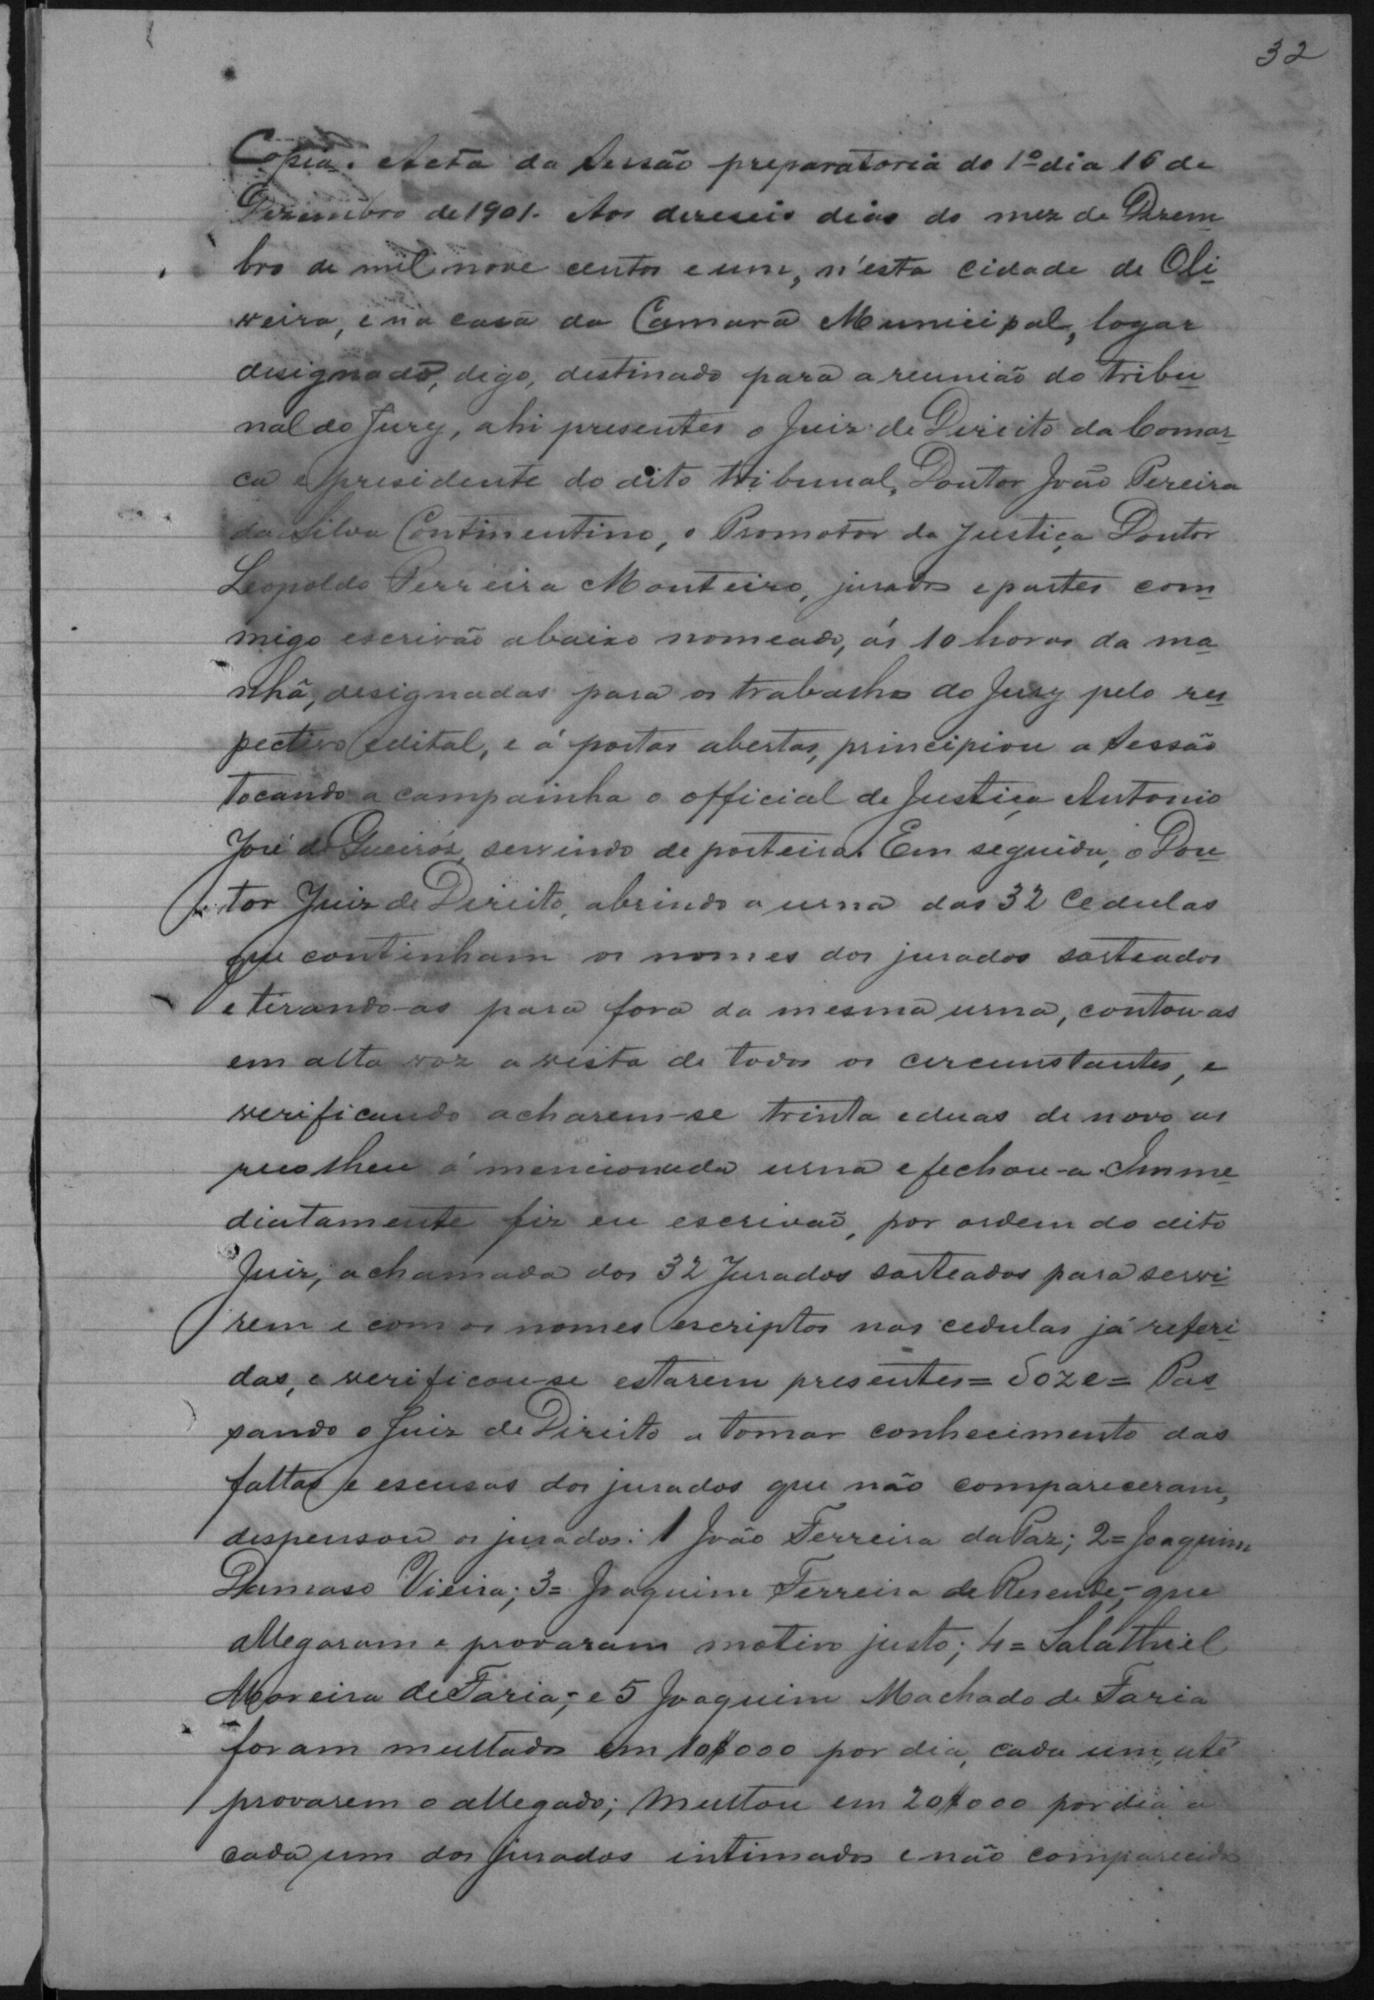 32
Copia. Acta da Sessão preparatoria do 1º dia 16 de
Dezembro de 1901. Aos dezeseis dias do mez de Dezem
bro de mil nove centos e um, n'esta cidade de Oli
veira, e na casa da Camara Municipal, logar
designado, digo, destinado para a reunião do tribu
nal do Jury, ahi presentes o Juiz de Direito da Comar
ca e presidente do dito tribunal, Doutor João Pereira
da Silva Continentino, o Promotor da Justiça Doutor
Leopoldo Ferreira Monteiro, jurados e partes com
migo escrivão abaixo nomeado, ás 10 horas da ma
nhã, designadas para os trabalhos do Jury pelo res
pectivo edital, e á portas abertas, principiou a Sessão
tocando a campainha o official de Justiça Antonio
José de Queiróz, servindo de porteiro. Em seguida, o Dou
tor Juiz de Direito, abrindo a urna das 32 cedulas
que continham os nomes dos jurados sorteados
e tirando-as para fora da mesma urna, contou-as
em alta voz a vista de todos os circunstantes, e
verificando acharem-se trinta e duas de novo as
recolheu á mencionada urna e fechou-a. Imme
diatamente fiz eu escrivão, por ordem do dito
Juiz, a chamada dos 32 Jurados sorteados para servi
rem e com os nomes escriptos nas cedulas já referi
das, e verificou-se estarem presentes = doze = Pas
sando o Juiz de Direito a tomar conhecimento das
faltas e escusas dos jurados que não compareceram,
despensou os jurados: 1 João Ferreira da Paz; 2= Joaquim
Damaso Vieira; 3= Joaquim Ferreira de Resende,- que
allegaram e provaram motivo justo; 4= Salathiel
Moreira de Faria;- e 5 Joaquim Machado de Faria
foram multados em 10$000 por dia, cada um, até
provarem o allegado; multou em 20$000 por dia a
cada um dos jurados intimados e não comparecidos